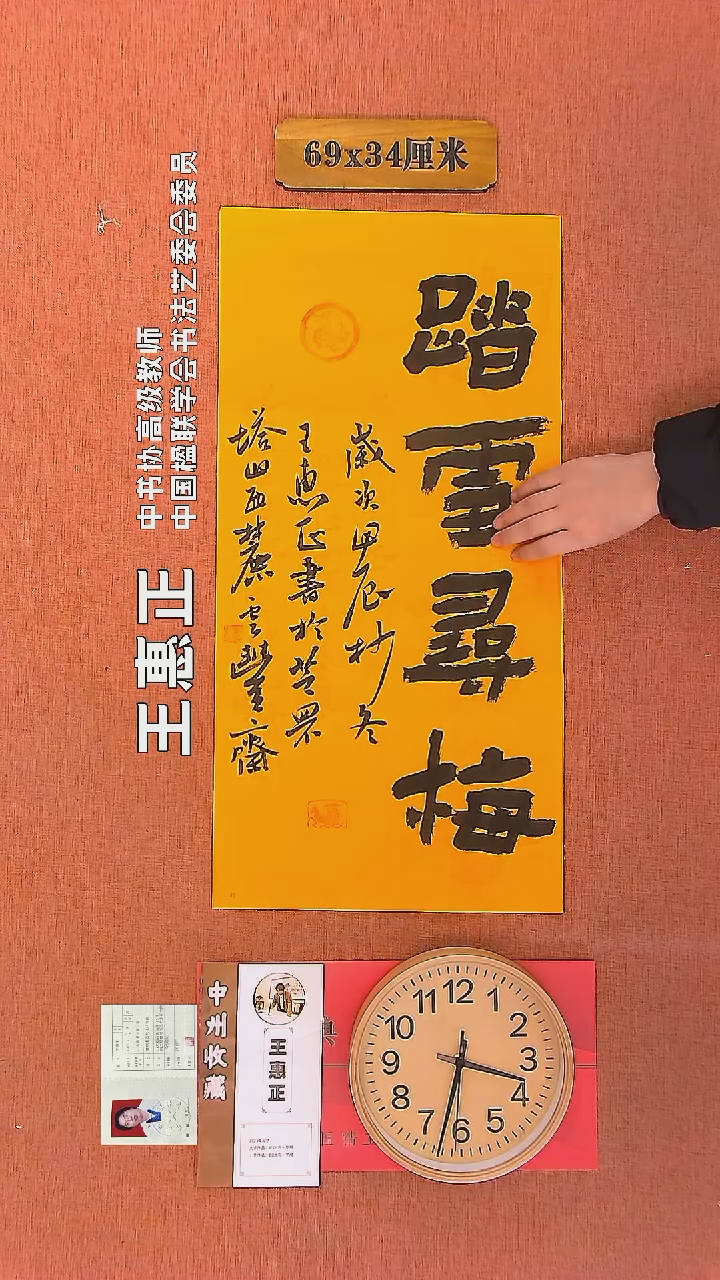 69x34厘米
踏雪尋梅
歲次甲辰杪冬
王惠正書於芝罘
塔山西麓雲豐齋
中书协高级教师
中国楹联学会书法艺委会委员
王惠正
中州收藏
王惠正
12
1
2
3
4
5
6
7
8
9
10
11